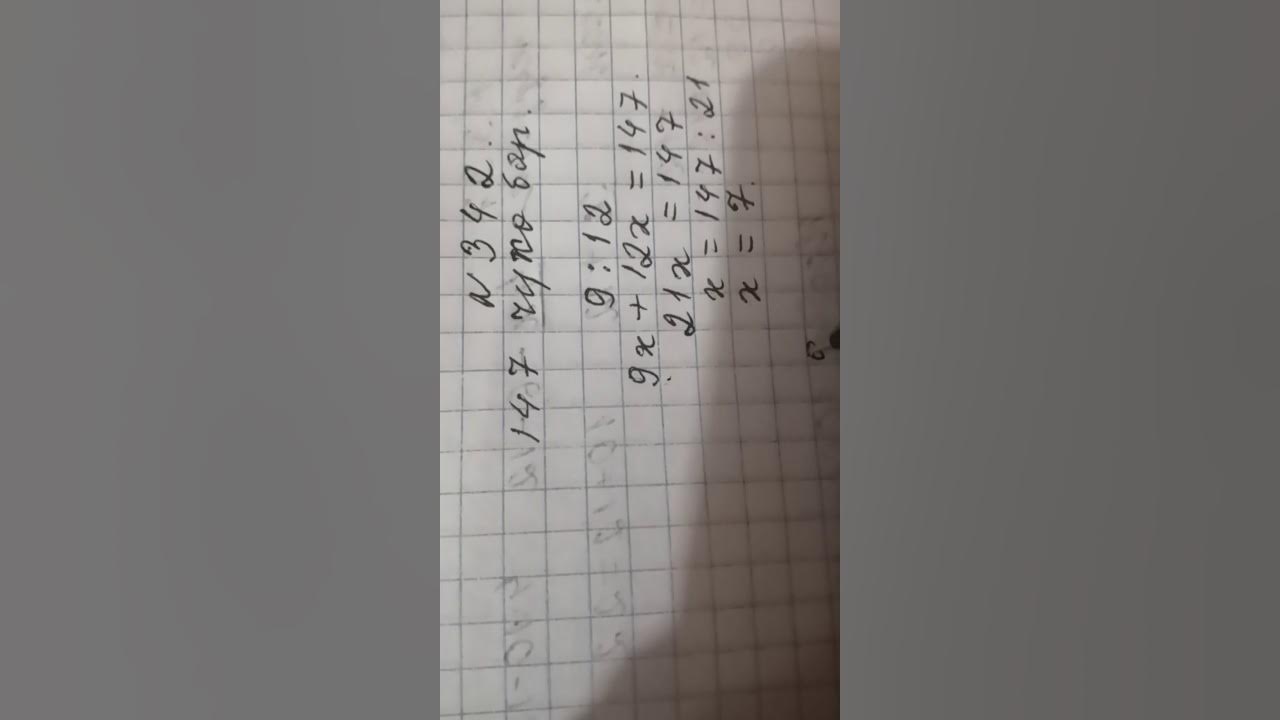 N 342.
147 чупа бар.
9 : 12
9x + 12x = 147.
21x = 147
x = 147 : 21
x = 7.